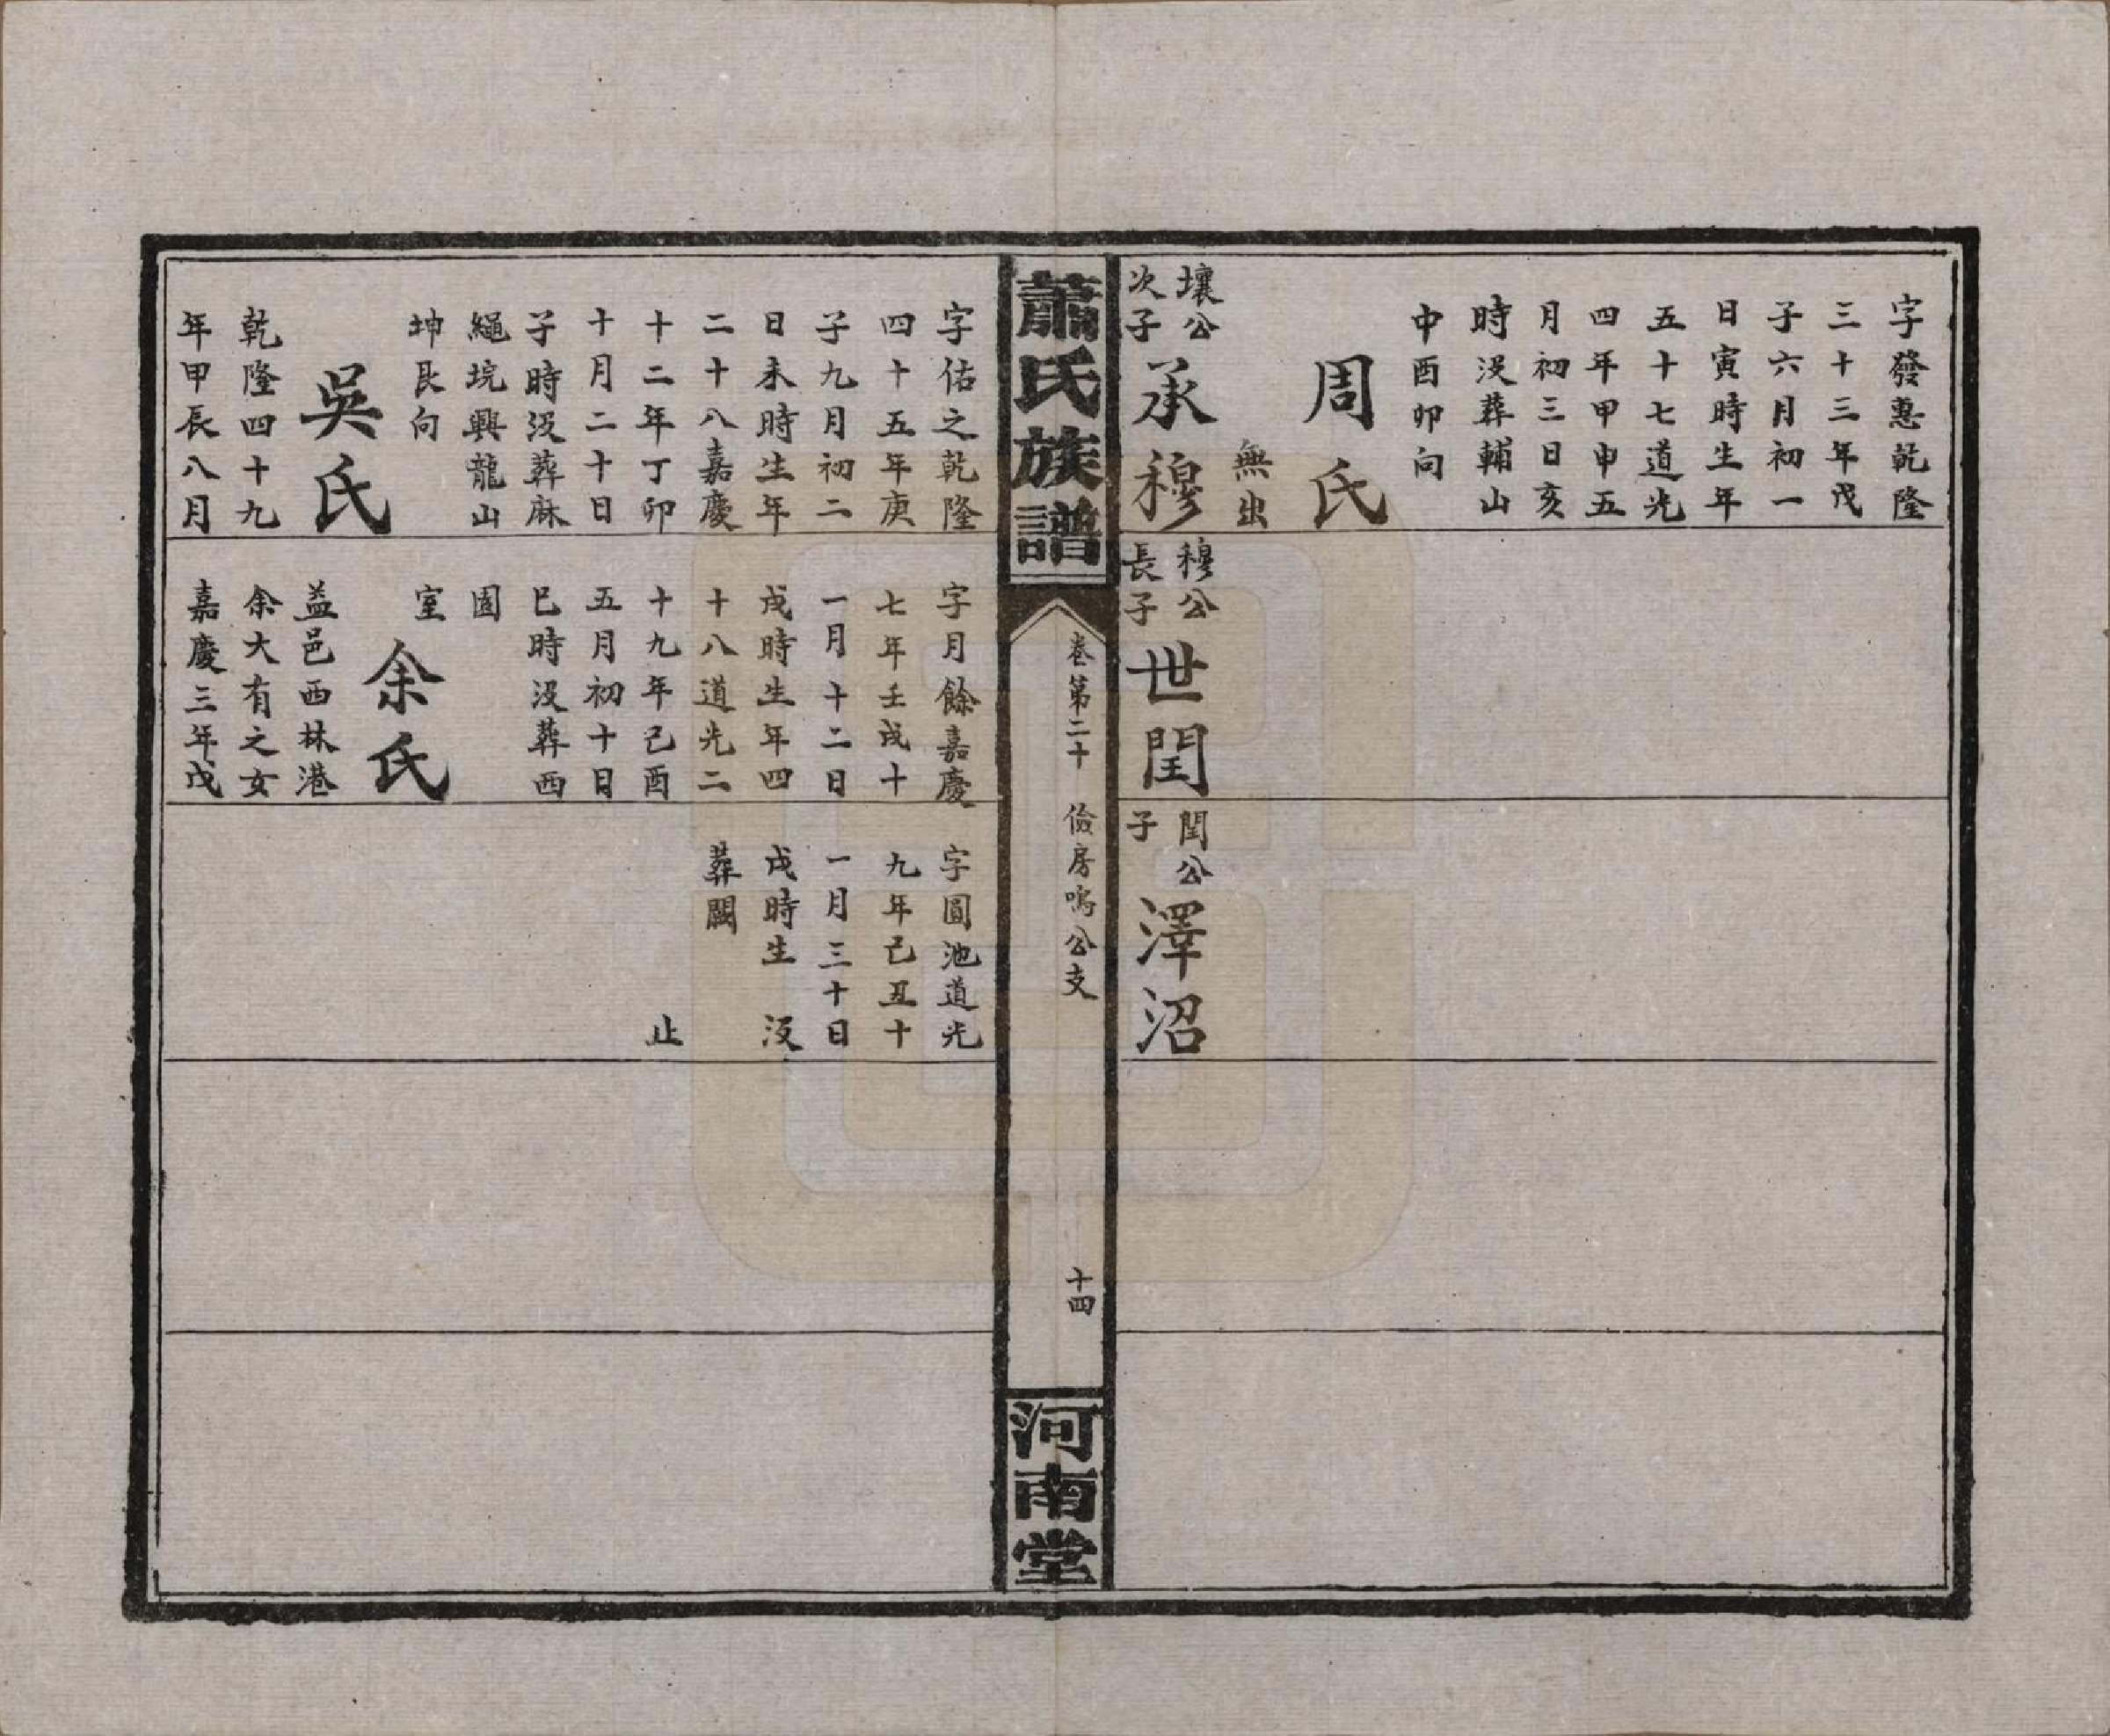 字發惠乾隆
三十三年戊
子六月初一
日寅時生年
五十七道光
四年甲申五
月初三日亥
時沒葬輔山
中酉卯向
周氏
無出
壤公
次子
承穆
穆公
長子
世閏
閏公
子
澤沼
蕭氏族譜
卷第二十　儉房鳴公支
十四
河南堂
字佑之乾隆
四十五年庚
子九月初二
日未時生年
二十八嘉慶
十二年丁卯
十月二十日
子時沒葬麻
繩垸興龍山
坤艮向
吳氏
乾隆四十九
年甲辰八月
字月餘嘉慶
七年壬戌十
一月十二日
戌時生年四
十八道光二
十九年己酉
五月初十日
巳時沒葬西
園
室
余氏
益邑西林港
余大有之女
嘉慶三年戊
字圓池道光
九年己丑十
一月三十日
戌時生　沒
葬闕
止